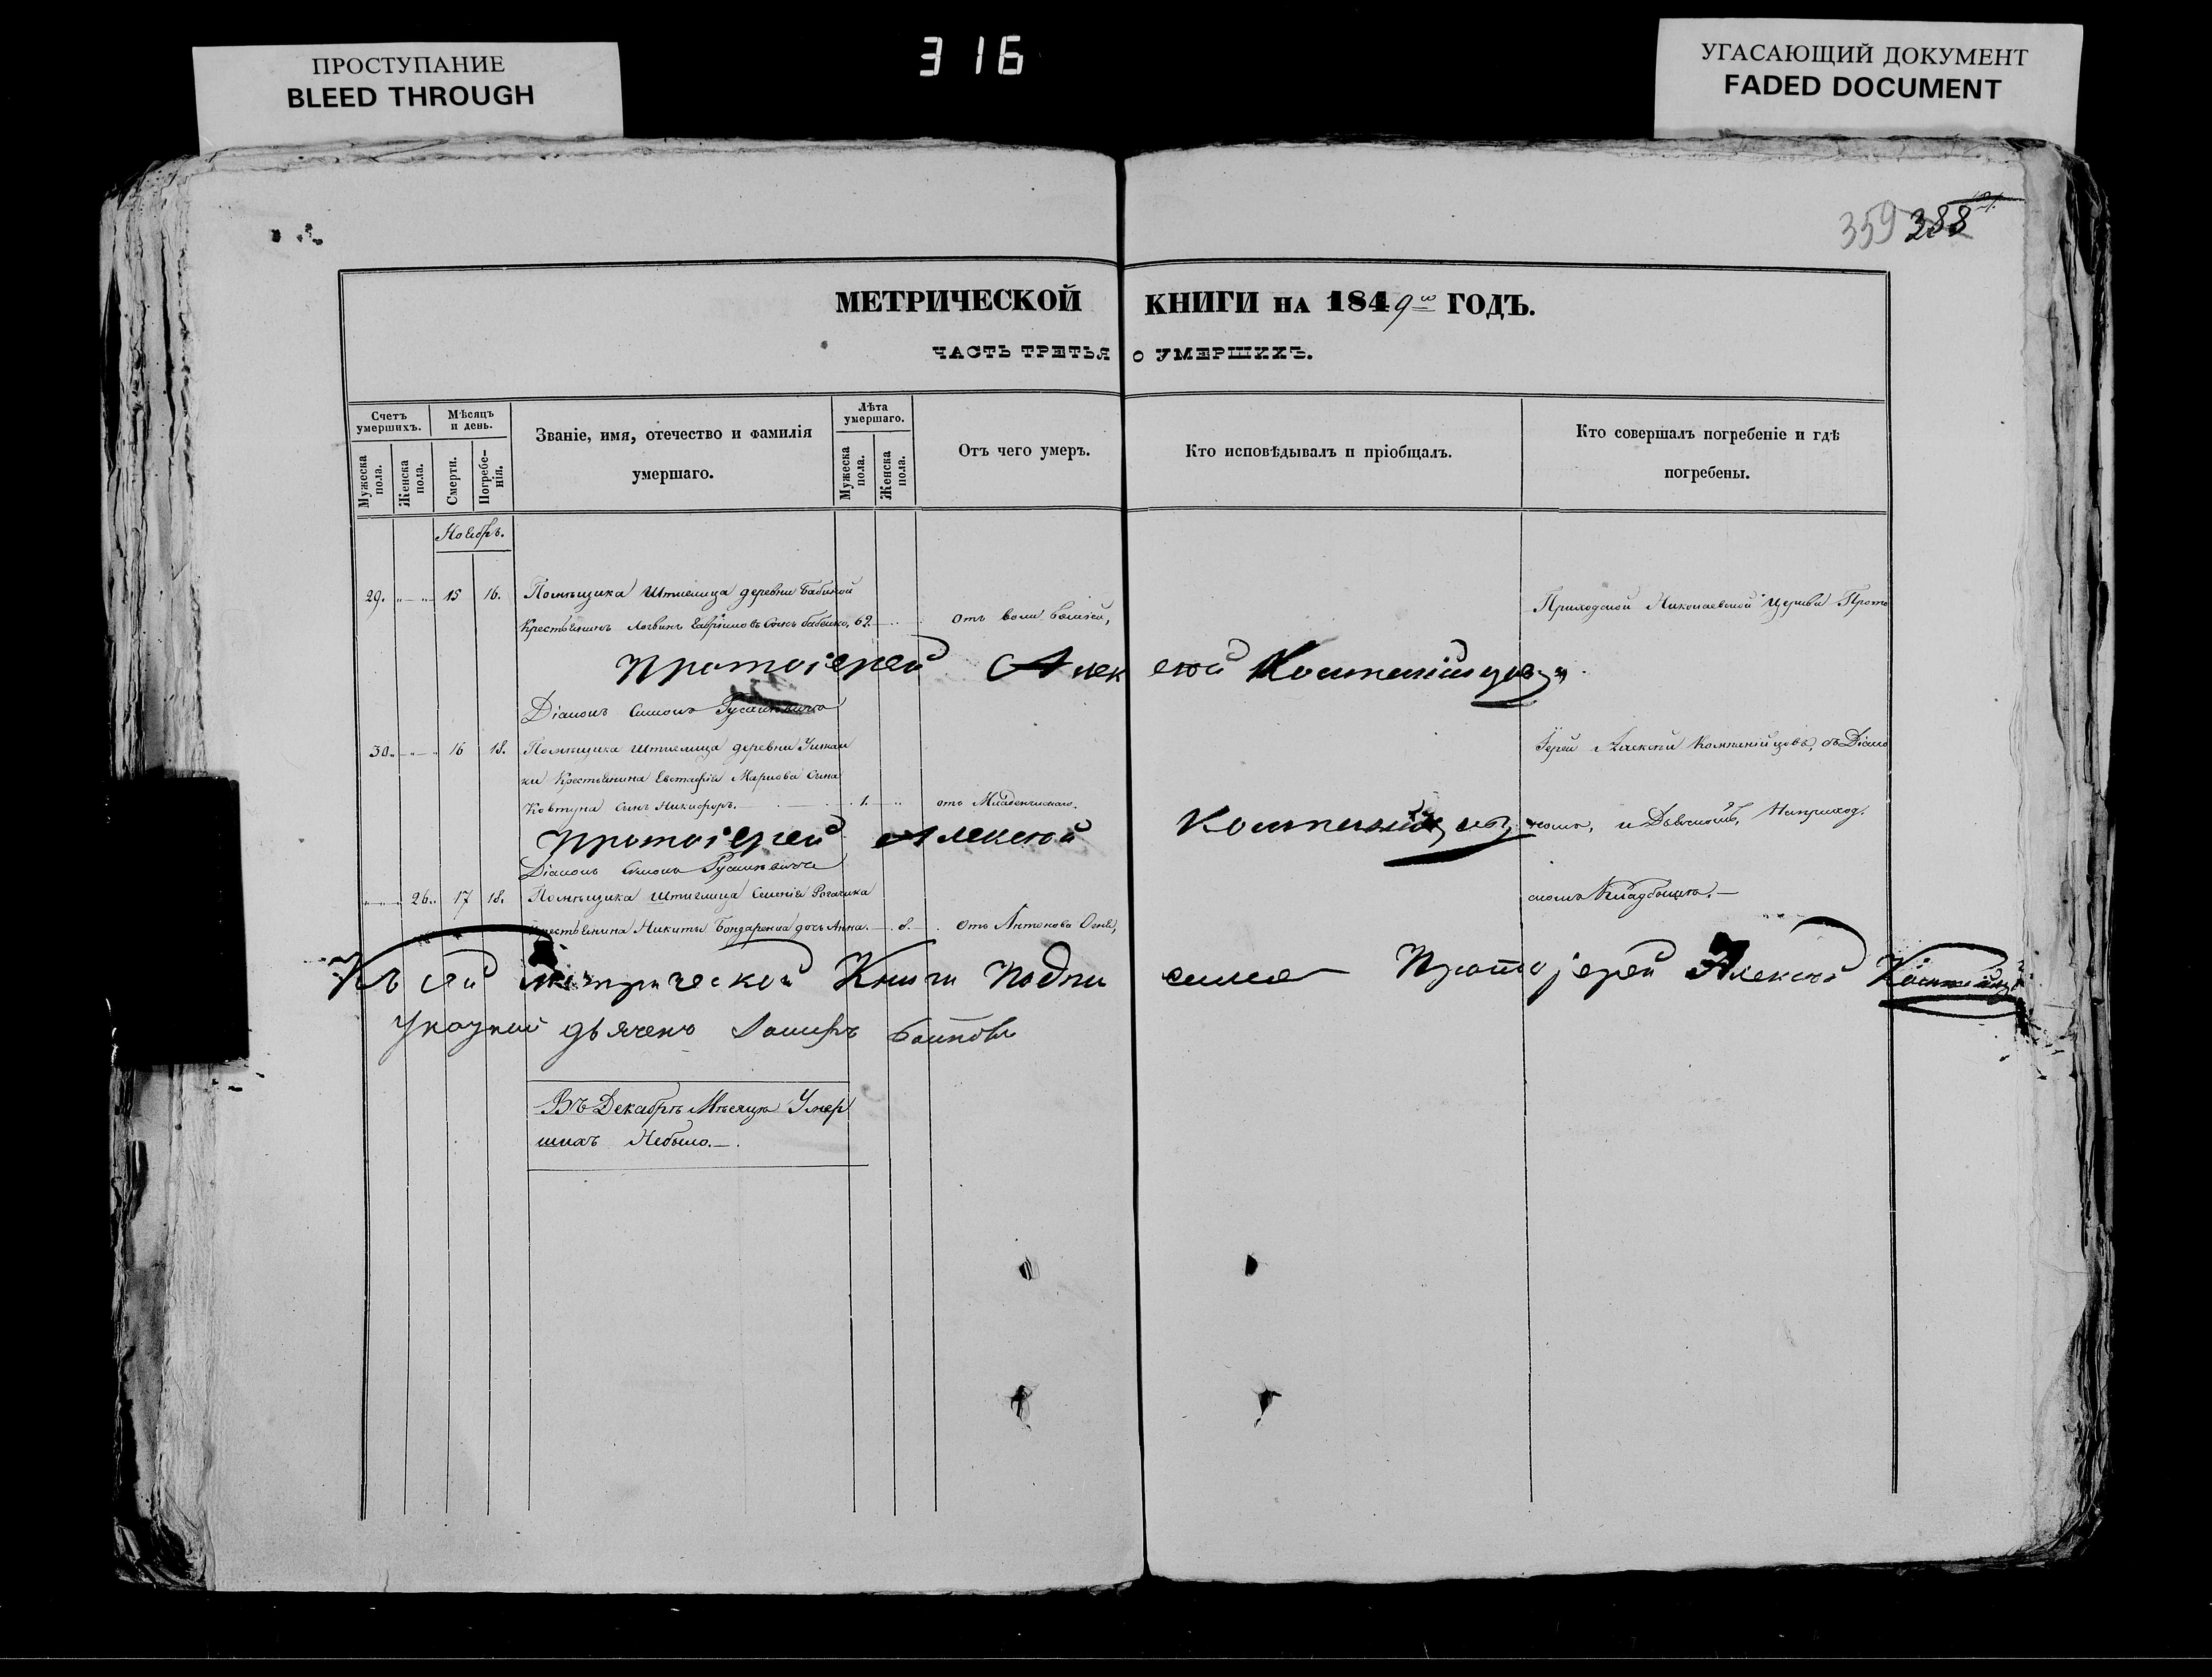 ПРОСТУПАНИЕ
BLEED THROUGH
316
УГАСАЮЩИЙ ДОКУМЕНТ
FADED DOCUMENT
359 388
МЕТРИЧЕСКОЙ КНИГИ НА 1849 ГОДЪ.
ЧАСТЬ ТРЕТЬЯ О УМЕРШИХЪ.
Счетъ умершихъ.
Мужеска пола.
Женска пола.
Мѣсяцъ и день.
Смерти.
Погребенія.
Званіе, имя, отечество и фамилія
умершаго.
Лѣта умершаго.
Мужеска пола.
Женска пола.
Отъ чего умеръ.
Кто исповѣдывалъ и пріобщалъ.
Кто совершалъ погребеніе и гдѣ
погребены.
Ноябрь.
29. 15 16. Помѣщика Штиглица деревни Бабиной
Крестьянинъ Логвинъ Гавріиловъ Сынъ Бабенко. 62. отъ
Приходской Николаевской Церкви Прото
Протоіерей Алексѣй Компанійцовъ
Діаконъ Симонъ
30. 16 18. Помѣщика Штиглица деревни
ки Крестьянина Евстафія Маркова Сына
Ковтуна сынъ Никифоръ. 1. отъ Младенческаго.
Іерей Алексѣй Компанійцовъ, съ Діако
Протоіерей Алексѣй Компанійцовъ
номъ, и Дьячкомъ, На приход.
Діаконъ Симонъ
26. 17 18. Помѣщика Штиглица Селенія Рогачика
Крестьянина Никиты Бондаренка дочь Анна. 8. Отъ Антонова Огня,
скомъ Кладбищѣ.
Къ сей Метрической Книги Подписался Протоіерей Алексѣй
дьячекъ
Въ Декабрѣ Мѣсяцѣ Умер
шихъ Небыло.